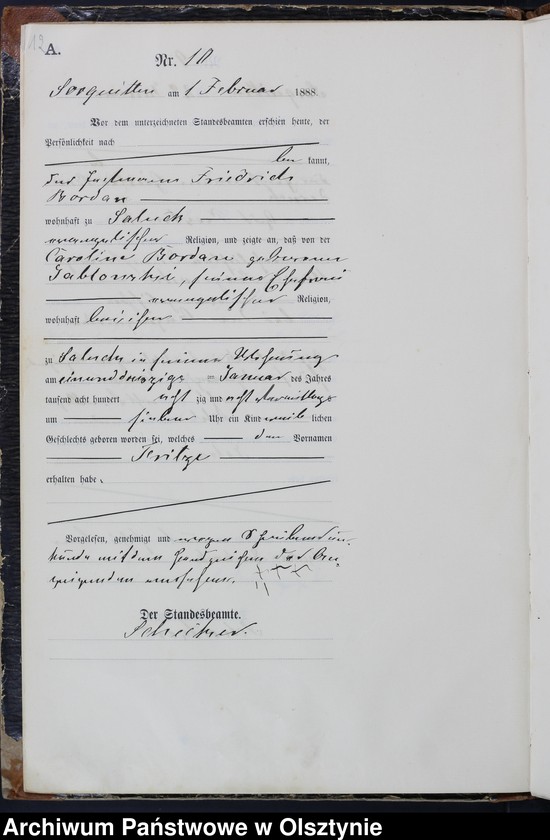 12
A.
Nr. 10
Sorquitten am 1 Februar 1888.
Vor dem unterzeichneten Standesbeamten erschien heute, der
Persönlichkeit nach
be kannt,
der Instmann Friedrich
Bordan
wohnhaft zu
evangelischer Religion, und zeigte an, daß von der
Caroline Bordan geborenen
Jablonski, seiner Ehefrau
evangelischer Religion,
wohnhaft bei ihm
zu in seiner Wohnung
am einunddreißigs ten Januar des Jahres
tausend acht hundert acht zig und acht Vormittags
um sieben Uhr ein Kind weib lichen
Geschlechts geboren worden sei, welches den Vornamen
erhalten habe.
Vorgelesen, genehmigt und wegen Schreibensun-
kunde mit dem Handzeichen des An-
zeigenden versehen.
+++
Der Standesbeamte.
Archiwum Państwowe w Olsztynie